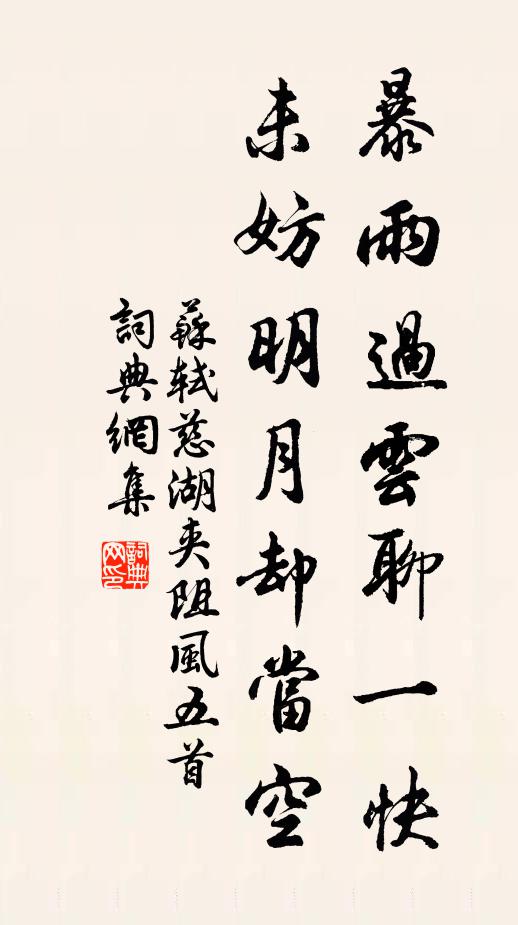 暴雨過雲聊一快
未妨明月却當空
蘇軾慈湖夾阻風五首
詞典網集
詞典网印